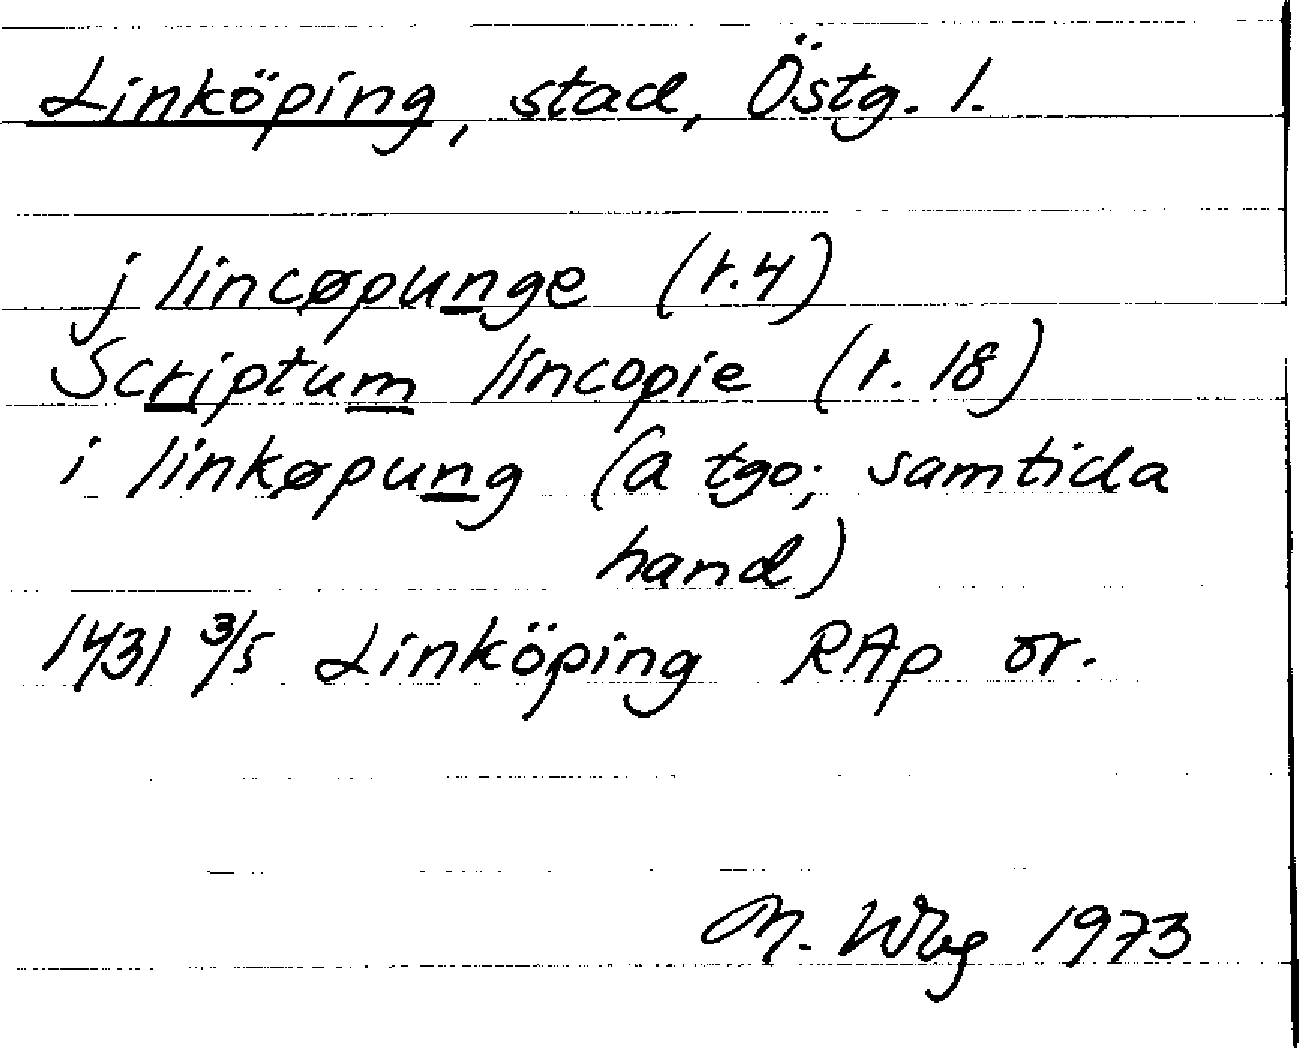 Linköping, stad, Östg. l.
j lincøpunge (r.4)
Scriptum lincopie (r. 18)
i linkøpung (a tgo; samtida
hand)
1431 3/5 Linköping RAp or.
M. Wbg 1973